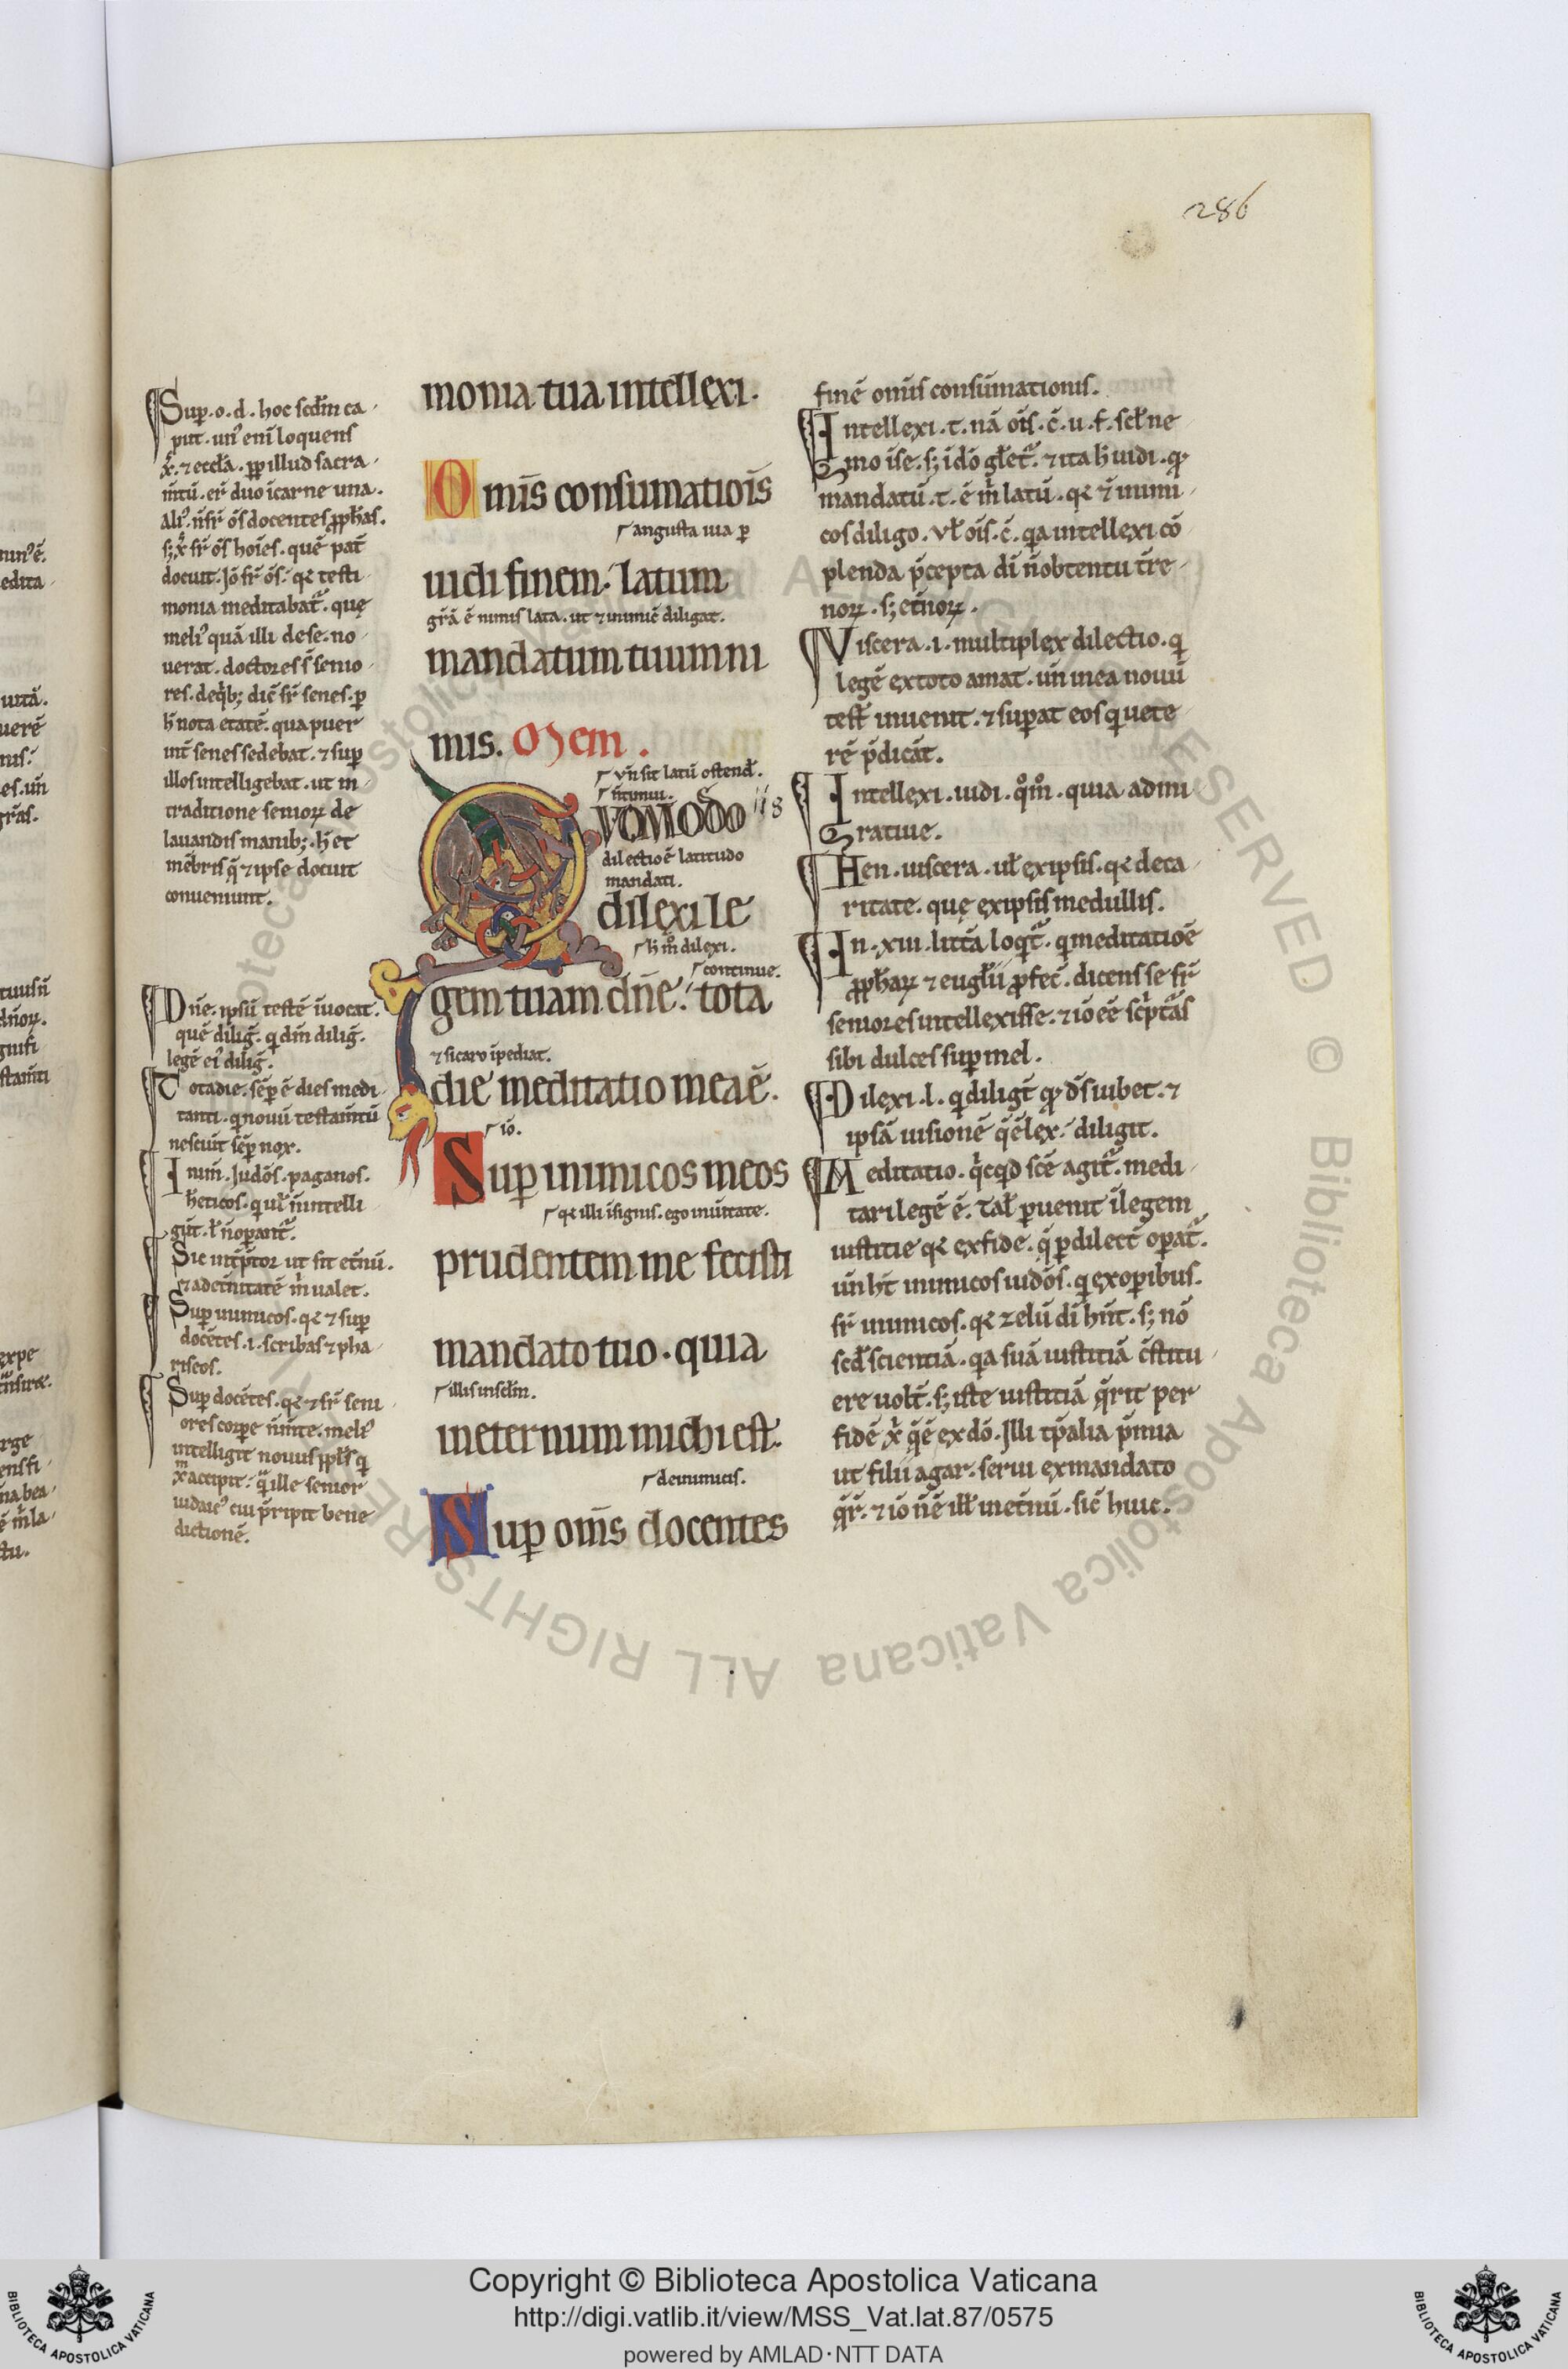 286
Sup̄. o. d. hoc scd̄m ca-
put. un᷒ eni loquens
x̄. ⁊ eccl̄a. pp̄ illud sacra-
m̄tū. er̄ duo ī carne una.
Ali᷒. n̄ sr̄ ōs docentes ꝓph̄as.
sꝫ x̄ sr̄ ōs hoīes. quē pat̄
docuit. Iō sr̄ ōs. qꝛ testi-
monia meditabat̄. quę
meli᷒ quā illi de se no-
uerat. doctores s̄ senio-
res. de qͥbꝫ dic̄ sr̄ senes. ꝑ
h̄ nota etatē. qua puer
int̄ senes sedebat. ⁊ sup̄
illos intelligebat. ut in
traditione senioꝝ de
lauandis manibꝫ. h̄ et
mēbris q̄ ⁊ ipse docuit
conueniunt.
Dn̄e. ipsū testē īuocat.
quē diliḡ. q dm̄ diliḡ.
legē ei᷒ diliḡ.
Tota die. sēp ē dies medi-
tanti. q nouū testam̄tū
nesciūt sēp nox.
Inim̄. Iudōs. paganos.
h̄eticos. q ul̄ n̄ intelli-
gūt. l̄ n̄ oꝑant̄.
Sic int̄p̄tor ut sit et̄nū.
⁊ ad et̄nitatē m̄ ualet.
Sup̄ inimicos. qꝛ ⁊ sup̄
docētes. i. scribas ⁊ pha-
riseos.
Sup̄ docētes. qꝛ ⁊ sr̄ seni-
ores corꝑe n̄ m̄te. meli᷒
intelligit nouus ppl̄s q
x̄m accipit. q̄ ille senior
iudaic᷒ cui p̄ripit bene-
dictionē.
monia tua intellexi.
Omīs consumatiōis
angusta uia ꝑ
uidi finem. latum
gr̄ā ē nimis lata. ut ⁊ inimic̄ diligat.
mandatum tuum ni
mis. Mem.
vn̄ sit latū ostend̄.
QVOMODO 118
dilectio ē latitudo
mandati.
dilexi le
h̄ m̊ dilexi.
continue.
gem tuam dn̄e. tota
⁊ si caro īpediat.
die meditatio mea ē.
iō.
Sup̄ inimicos meos
qꝛ illi ī signis. ego in ūitate.
prudentem me fecisti
mandato tuo. quia
illis in scl̄m.
in eternum michi est.
de inimicis.
Sup̄ om̄s docentes
finē om̄is consūmationis.
Intellexi. t. nā ōis. c̄. u. f. scl̄ ne
mo ise. sꝫ idō gl̄et̄. ⁊ ita h̄ uidi. q̄
mandatū. t. ē m̄ latū. qꝛ ⁊ inimi-
cos diligo. Vl̄ ōis. c̄. qa intellexi cō-
plenda p̄cepta dī n̄ obtentu t̄re-
noꝝ. sꝫ et̄noꝝ.
Viscera. i. multiplex dilectio. q
legē ex toto amat. un̄ in ea nouū
test̄ inuenit. ⁊ suꝑat eos q uete-
rē p̄dicāt.
Intellexi. uidi. qm̊. quia ad ini-
ratiue.
Hen. uiscera. ul̄ ex ipsis. qꝛ de ca-
ritate. quę ex ipsis medullis.
In. xiii. litt̄a loqt̄. q meditatiōē
ꝓph̄aꝝ ⁊ eugl̄ii ꝓfec̄. dicens se sr̄
seniores intellexisse. ⁊ iō eē scͥptᷓas
sibi dulces sup̄ mel.
Dilexi. l. q diligt̄ q̄ ds̄ iubet. ⁊
ipsā uisionē q̄ ē lex. diligit.
Meditatio. qͥcqd scē agit̄. medi-
tari legē ē. Tal̄ ꝑuenit ī legem
iustitie qꝛ ex fide. q̄ ꝑ dilect̄ oꝑat̄.
un̄ ht̄ inimicos iudōs. q ex oꝑibus.
sr̄ inimicos. qꝛ zelū dī hn̄t. sꝫ nō
scd̄ scientiā. qa suā iustitiā c̄stitu-
ere uolt̄. sꝫ iste iustitiā q̄rit per
fidē x̄ⁱ q̄ ē ex dō. Illi tp̄alia p̄mia
ut filii agar. serui ex mandato
q̄r̄. ⁊ iō n̄ ē ill̄ inet̄nū. sic̄ huic.
Copyright © Biblioteca Apostolica Vaticana
http://digi.vatlib.it/view/MSS_Vat.lat.87/0575
powered by AMLAD·NTT DATA
BIBLIOTECA APOSTOLICA VATICANA
BIBLIOTECA APOSTOLICA VATICANA